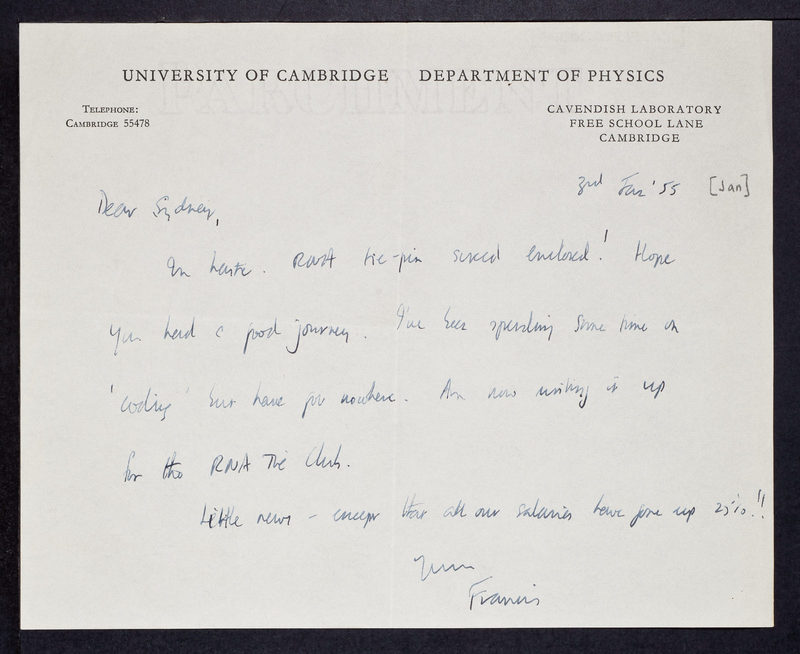 UNIVERSITY OF CAMBRIDGE DEPARTMENT OF PHYSICS
TELEPHONE:
CAMBRIDGE 55478
CAVENDISH LABORATORY
FREE SCHOOL LANE
CAMBRIDGE
3rd Jan '55 [Jan]
Dear Sydney,
In haste. RNA tie-pin enclosed! Hope
you had a good journey. I've been spending some time on
'coding' but have got nowhere. Am now writing it up
for the RNA Tie Club.
Little news - except that all our salaries have gone up 25%!!
Yours
Francis